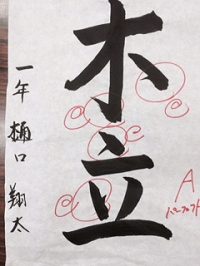 木立
一年 樋口 翔太
A
パーフェクト